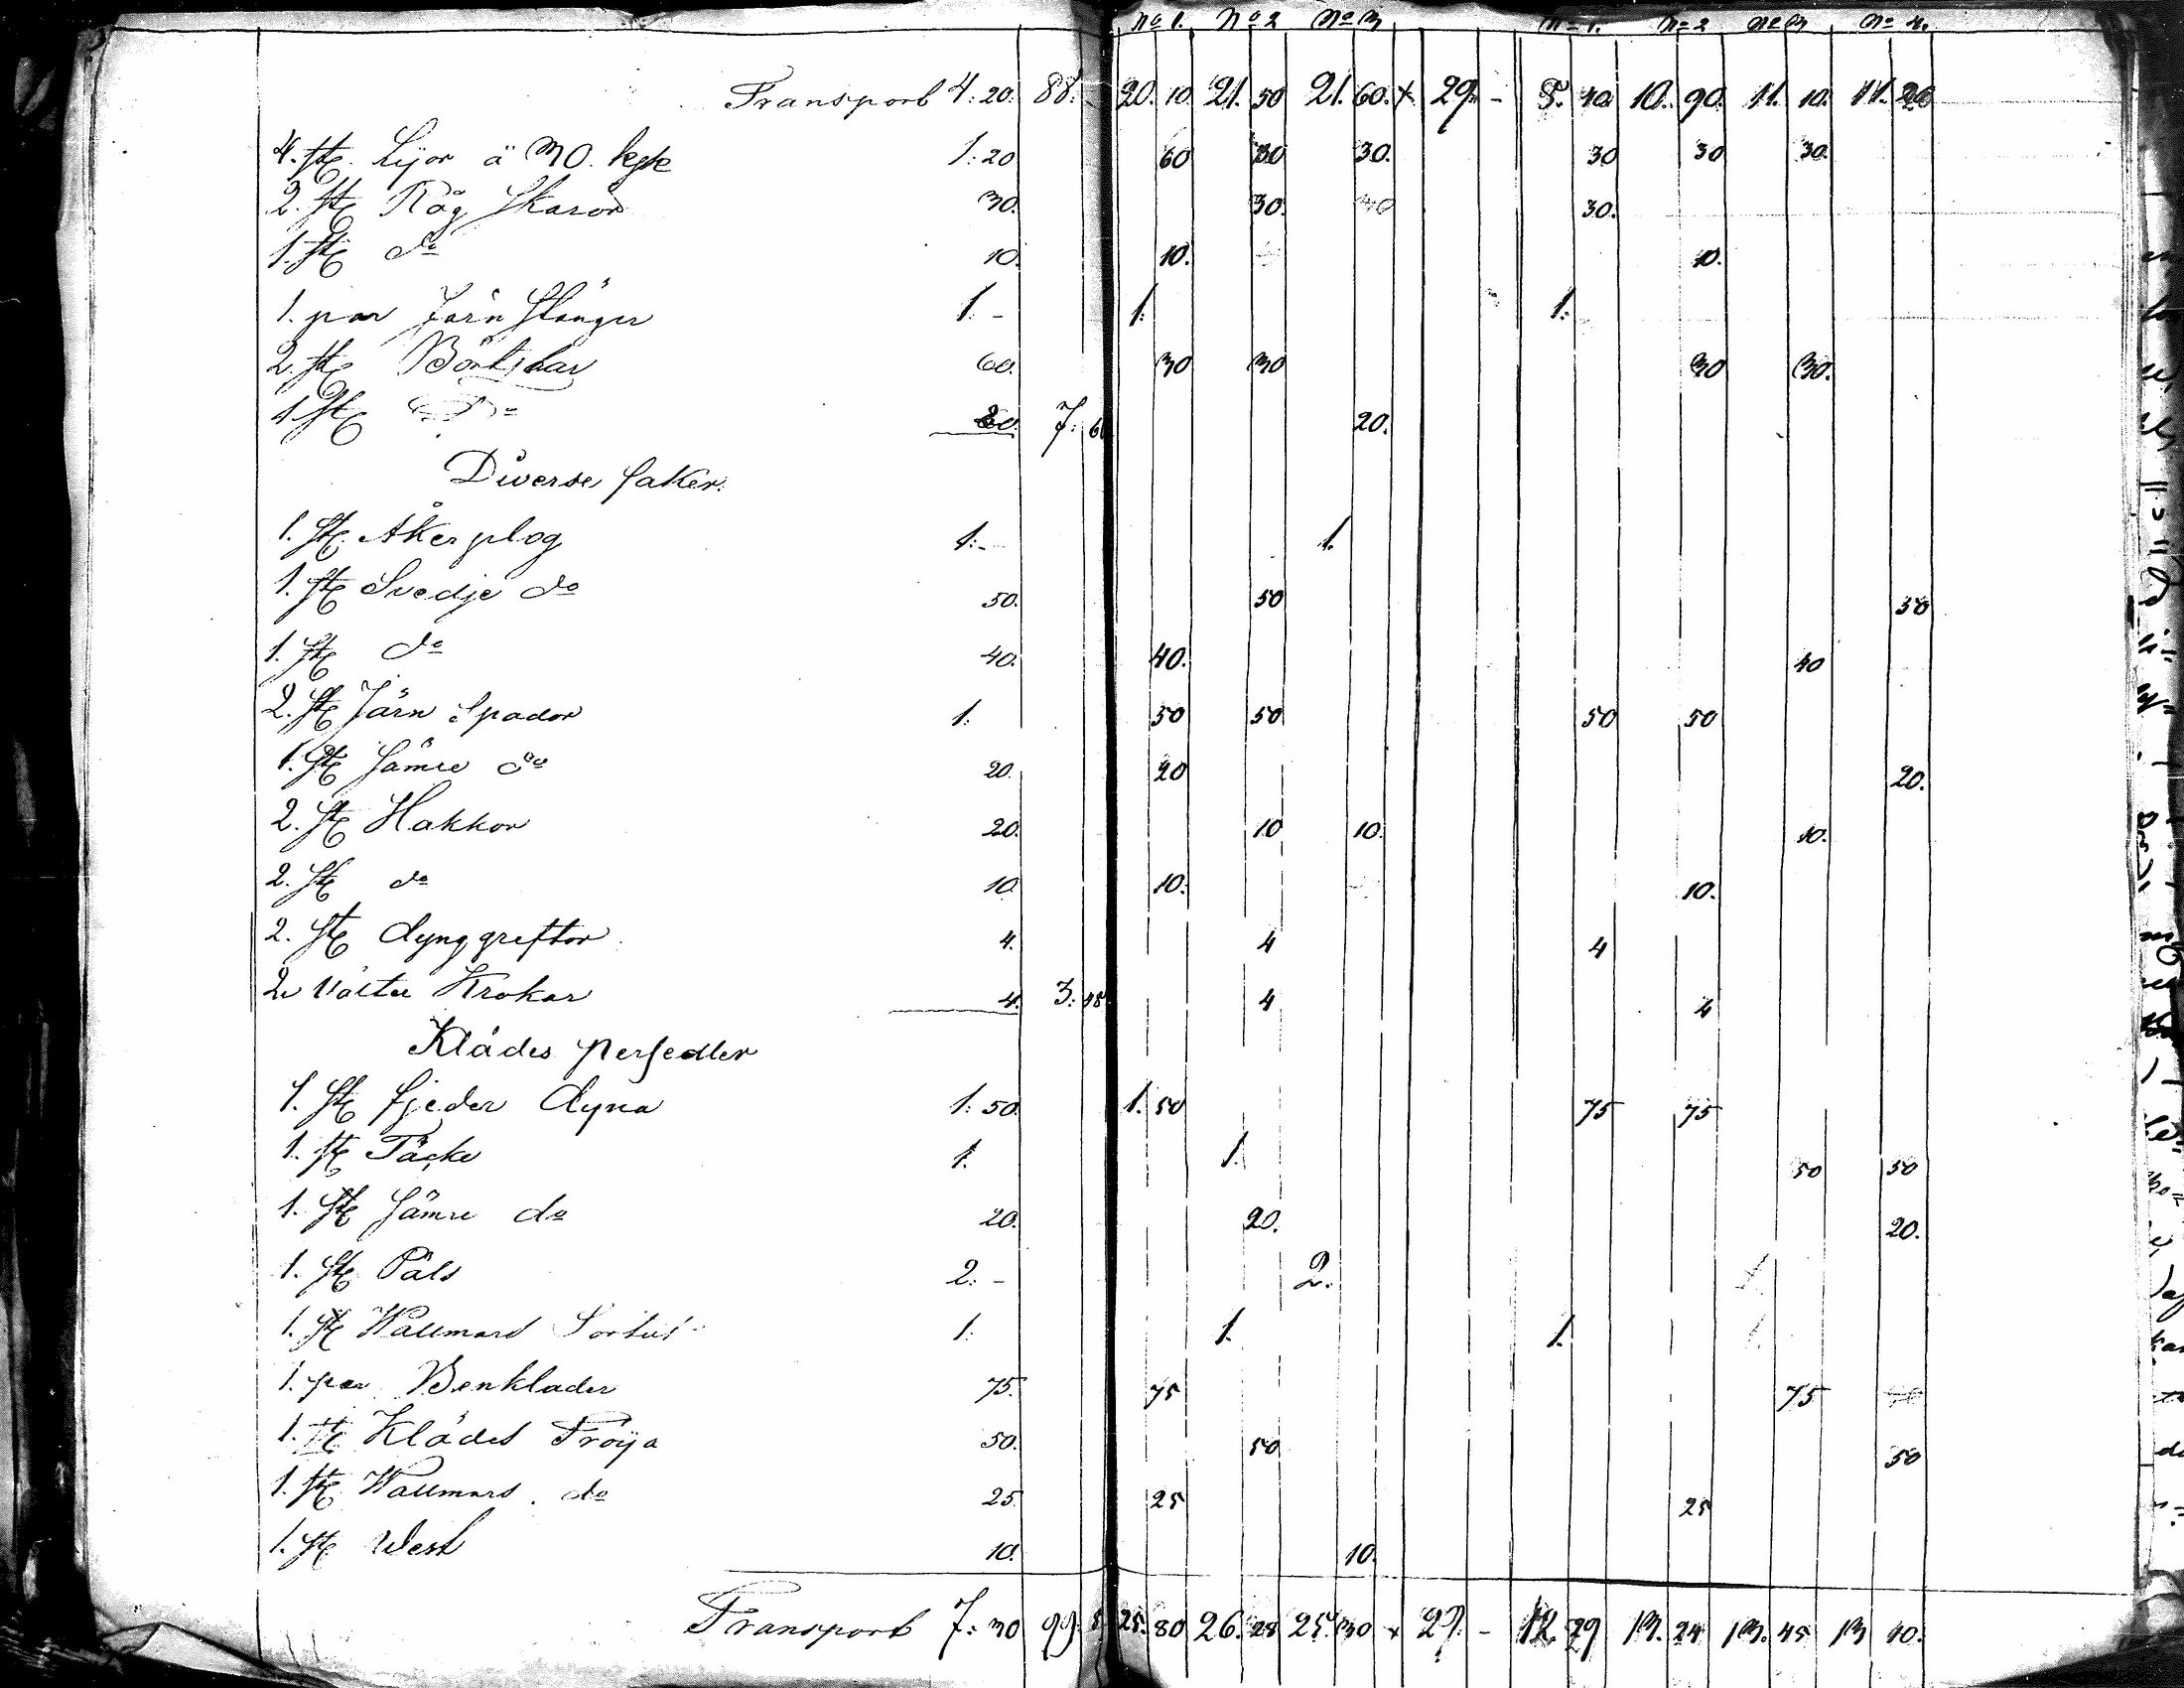 No 1. No 2 No 3 No 1. No 2 No 3 No 4.
Transport 4: 20. 88. - 20. 10 21. 50 21. 60. x 29. - 5. 40. 10. 90. 11. 10. 11. 20
4. st Lijor à 30. kpk 1: 20 60 30 30. 30 30 30.
2. st Råg Skäror 30. 30. 30.
1. st do 10. 10. 10.
1. par Järn Stänger 1. - 1: 1:
2. st 60. 30 30 30 30.
1 st Do 20. 7: 20.
Diverse saker.
1. st Åker plog 1: - 1.
1. st Svedje do 50. 50 50
1. st do 40. 40. 40
2. st Järn Spador 1: 50 50 50 50
1. st sämre do 20. 20 20.
2. st Hakkor 20. 10 10. 10.
2. st do 10. 10. 10.
2. st dynggreftor 4. 4 4
2 Krokar 4. 3: 48 4 4
Klädes persedler
1. st fjeder dyna 1: 50. 1. 50 75 75
1. st Täcke 1. 1. 50 50
1. st sämre do 20. 20. 20.
1. st Päls 2: - 2.
1. st Wallmars 1: 1. 1.
1. par Benkläder 75. 75 75
1. st Klädes Tröya 50. 50 50
1. st Wallmars do 25. 25 25
1. st West 10. 10.
Transport 7: 30 99. 8 25. 80 26. 28 25. 30 x 29. - 12. 29 13. 24 13. 45 13 10.